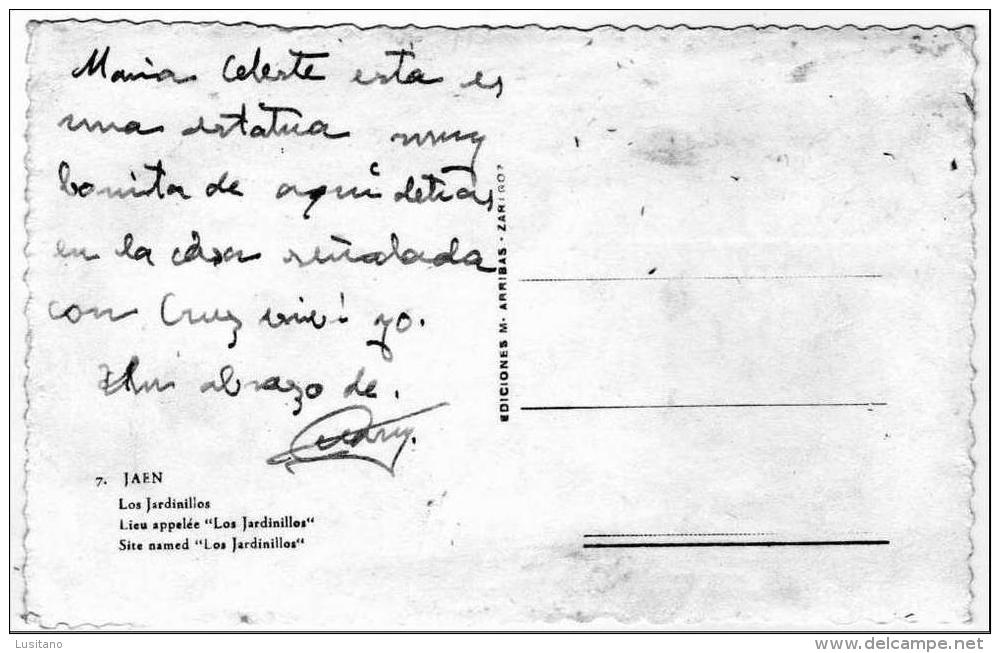 Maria Celeste esta es
una estatua muy
bonita de aqui detras
en la casa señalada
con Cruz vivi yo.
Un abrazo de.
7. JAEN
Los Jardinillos
Lieu appelée "Los Jardinillos"
Site named "Los Jardinillos"
EDICIONES M. ARRIBAS - ZARAGOZA
Lusitano
www.delcampe.net